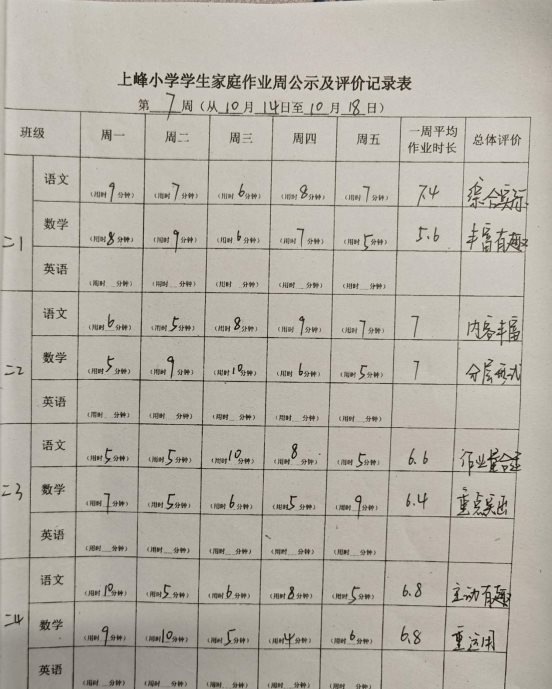 上峰小学学生家庭作业周公示及评价记录表
第 7 周（从 10 月 14 日至 10 月 18 日）
班级 周一 周二 周三 周四 周五 一周平均作业时长 总体评价
二1 语文 （用时 9 分钟） （用时 7 分钟） （用时 6 分钟） （用时 8 分钟） （用时 7 分钟） 7.4 综合实际
数学 （用时 8 分钟） （用时 9 分钟） （用时 6 分钟） （用时 7 分钟） （用时 5 分钟） 5.6 丰富有趣
英语 （用时 分钟） （用时 分钟） （用时 分钟） （用时 分钟） （用时 分钟）
二2 语文 （用时 6 分钟） （用时 5 分钟） （用时 8 分钟） （用时 9 分钟） （用时 7 分钟） 7 内容丰富
数学 （用时 5 分钟） （用时 9 分钟） （用时 10 分钟） （用时 6 分钟） （用时 5 分钟） 7 分层形式
英语 （用时 分钟） （用时 分钟） （用时 分钟） （用时 分钟） （用时 分钟）
二3 语文 （用时 5 分钟） （用时 5 分钟） （用时 10 分钟） （用时 8 分钟） （用时 5 分钟） 6.6 作业量合适
数学 （用时 7 分钟） （用时 5 分钟） （用时 6 分钟） （用时 5 分钟） （用时 9 分钟） 6.4 重点
英语 （用时 分钟） （用时 分钟） （用时 分钟） （用时 分钟） （用时 分钟）
二4 语文 （用时 10 分钟） （用时 5 分钟） （用时 6 分钟） （用时 8 分钟） （用时 5 分钟） 6.8 主动有趣
数学 （用时 9 分钟） （用时 10 分钟） （用时 5 分钟） （用时 4 分钟） （用时 6 分钟） 6.8 重运用
英语 （用时 分钟） （用时 分钟） （用时 分钟） （用时 分钟） （用时 分钟）